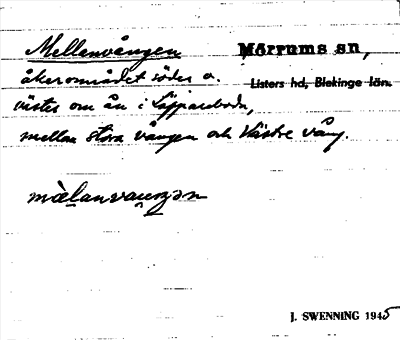 Mellanvången Mörrums sn,
åkerområdet söder o. Listers hd, Blekinge län.
väster om ån i
mellan Stora vången och Västre vång.
J. SWENNING 1945